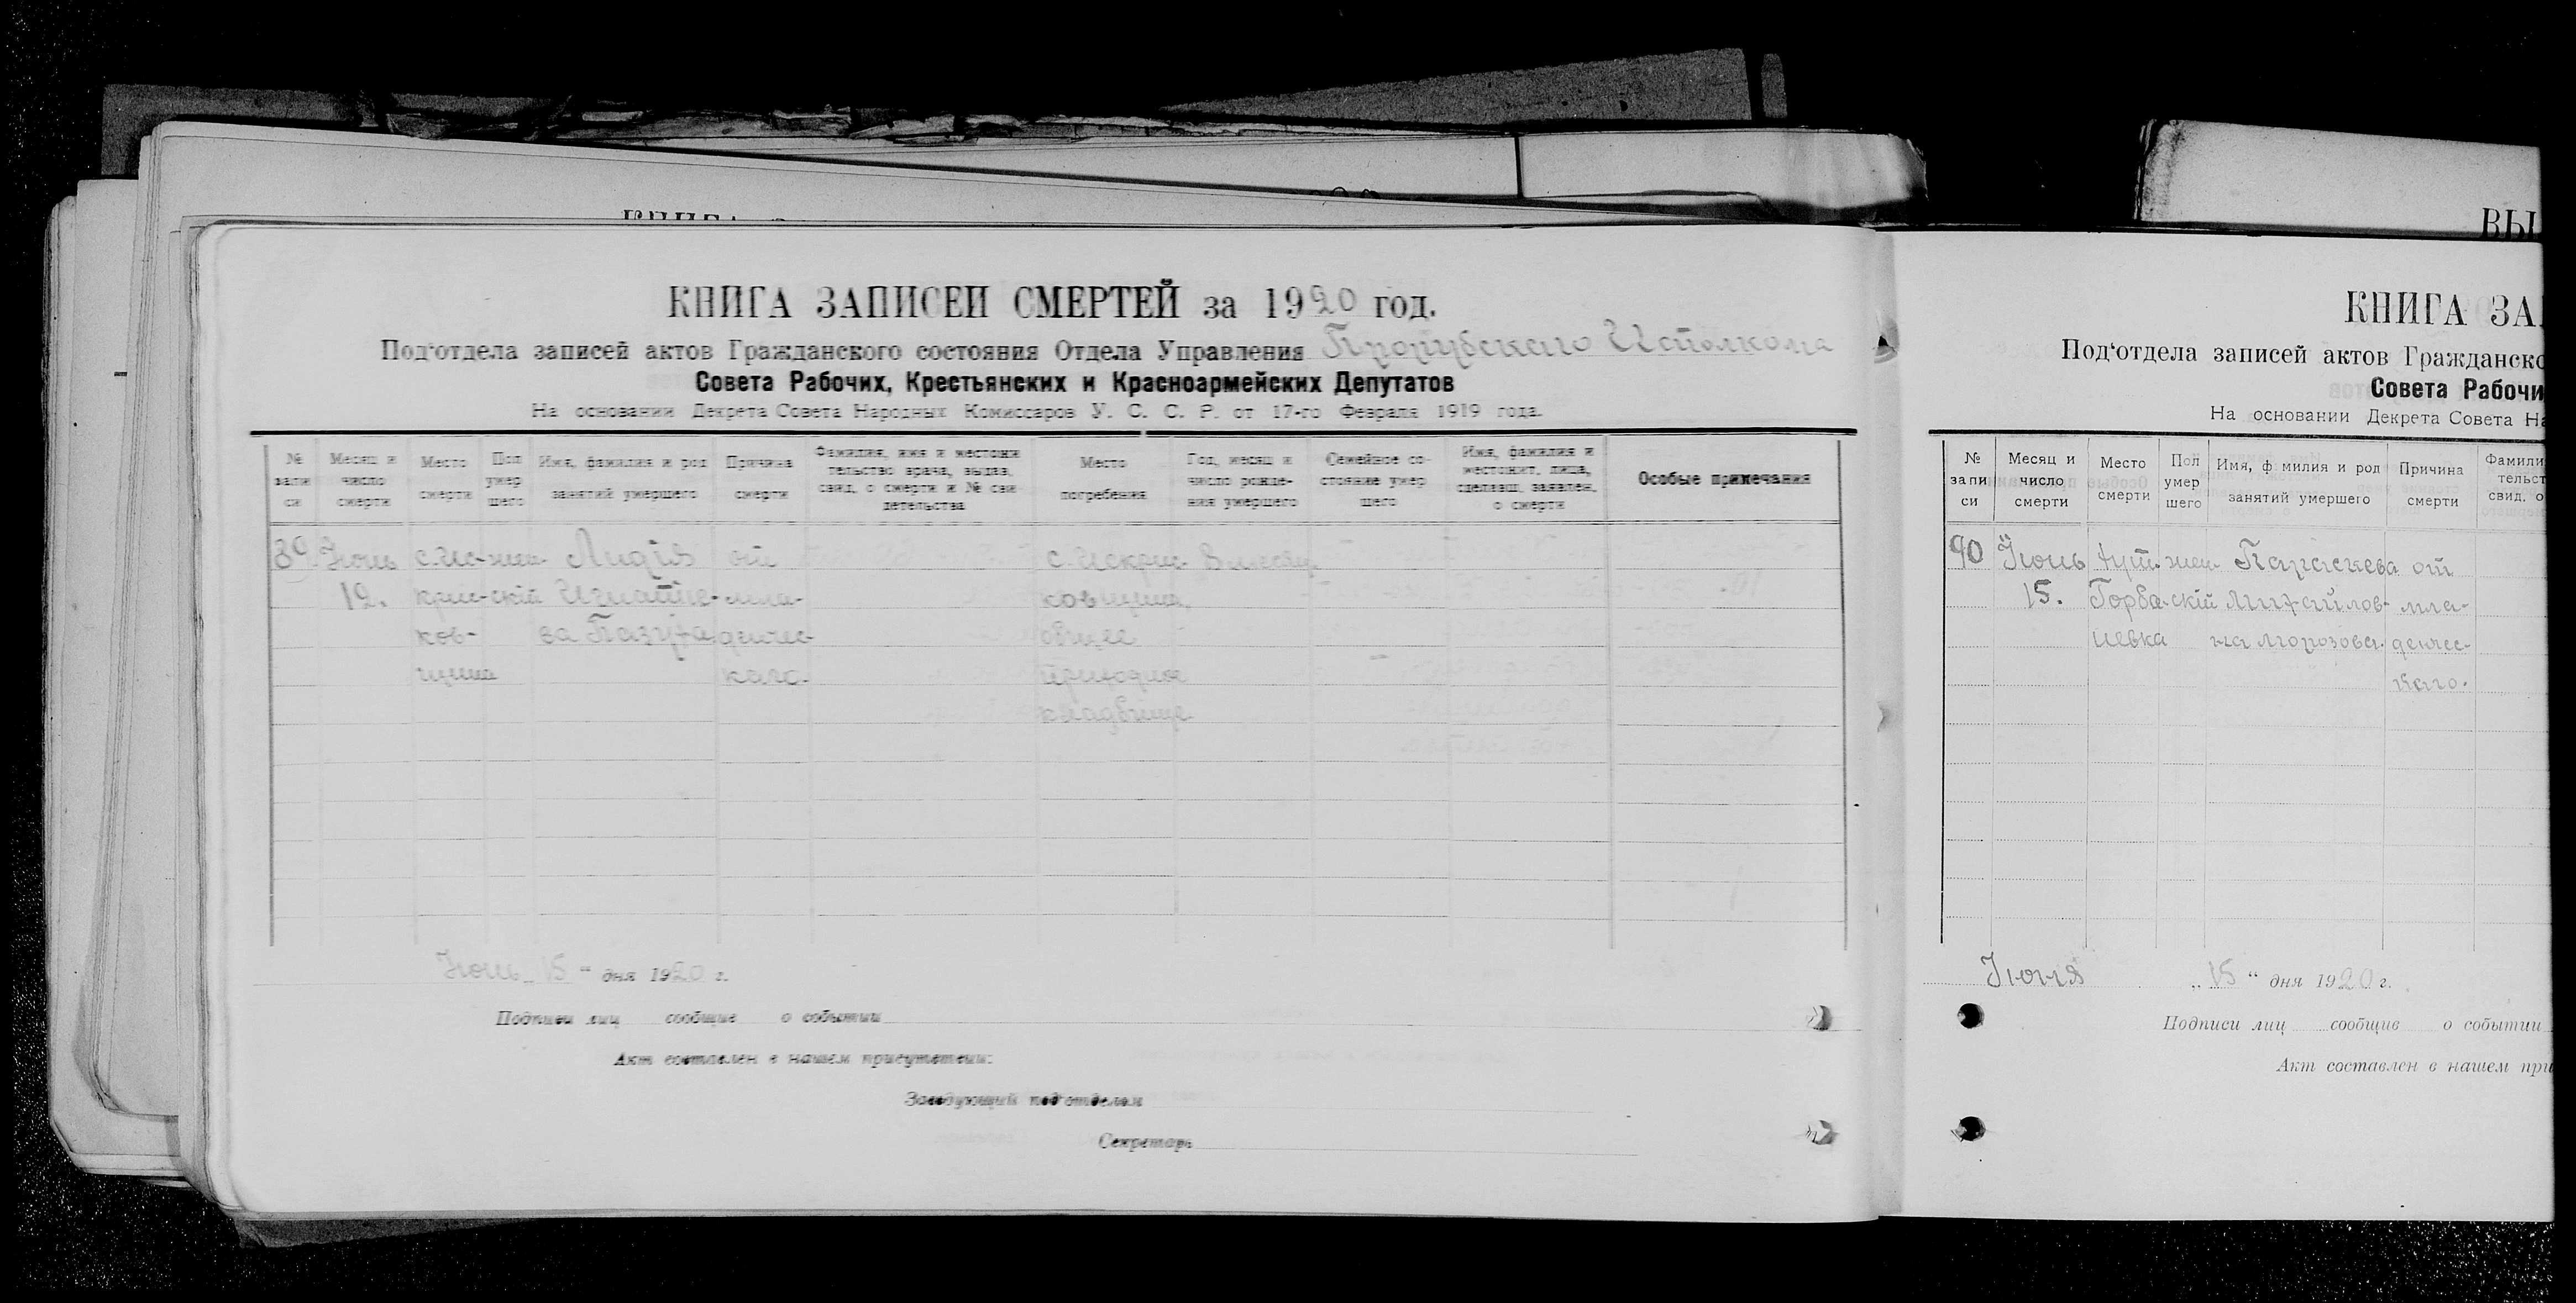 ВЫ
КНИГА ЗАПИСЕЙ СМЕРТЕЙ за 1920 год.
Под‘отдела записей актов Гражданского состояния Отдела Управления
Совета Рабочих, Крестьянских и Красноармейских Депутатов
На основании Декрета Совета Народных Комиссаров У. С. С. Р. от 17-го Февраля 1919 года.
№ запи си
Месяц и число смерти
Место смерти
Пол умер шего
Имя, фамилия и род занятий умершего
Причина смерти
Фамилия, имя и местожи
тельство врача, выдав.
свид. о смерти и № сви
детельства
Место погребения
Год, месяц и число рожде- ния умершего
Семейное со- стояние умер шего
Имя, фамилия и
местожит. лица,
сделавш. заявлен.
о смерти
Особые примечания
89. Июнь с. Ис- жен- Лидія от с. Искрис-
12. крис- скій Игнатье- мла- ковщина,
ков- ва денчес- общее
щина каго. приходское
кладбище
Июнь 15 “ дня 1920 г.
Подписи лиц сообщив о событии
Акт составлен в нашем присутствии:
Заведующий под‘отделом
Секретарь
КНИГА ЗА
Под‘отдела записей актов Гражданско
Совета Рабочи
На основании Декрета Совета На
№ запи си
Месяц и число смерти
Место смерти
Пол умер шего
Имя, ф милия и род занятий умершего
Причина смерти
Фамили
тельст
свид. о
90 Июнь хут. жен- Параскева от
15. Горба- скій Михайлов- мла-
невка на Морозова. денчес-
каго.
Июня „ 15 “ дня 1920 г.
Подписи лиц сообщив о событии
Акт составлен в нашем при